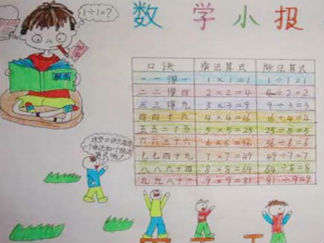 数学小报
1÷1=?
口诀 乘法算式 除法算式
一一得一 1×1=1 1÷1=1
二二得四 2×2=4 4÷2=2
三三得九 3×3=9 9÷3=3
四四十六 4×4=16 16÷4=4
五五二十五 5×5=25 25÷5=5
六六三十六 6×6=36 36÷6=6
七七四十九 7×7=49 49÷7=7
八八六十四 8×8=64 64÷8=8
九九八十一 9×9=81 81÷9=9